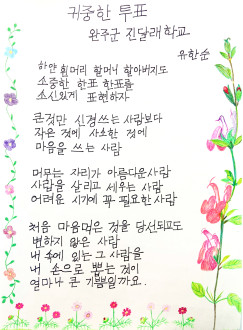 귀중한 투표
완주군 진달래학교
유한순
하얀 흰머리 할머니 할아버지도
소중한 한표 한표를
소신있게 표현하자
큰것만 신경쓰는 사람보다
작은 것에 사소한 것에
마음을 쓰는 사람
머무는 자리가 아름다운사람
사람을 살리고 세우는 사람
어려운 시기에 꼭 필요한 사람
처음 마음먹은 것을 당선되고도
변하지 않은 사람
내 속에 있는 그 사람을
내 손으로 뽑는 것이
얼마나 큰 기쁨일까요.